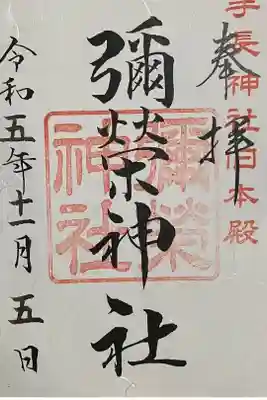 手長神社旧本殿
奉拝
彌榮神社
彌榮神社
令和五年十一月五日